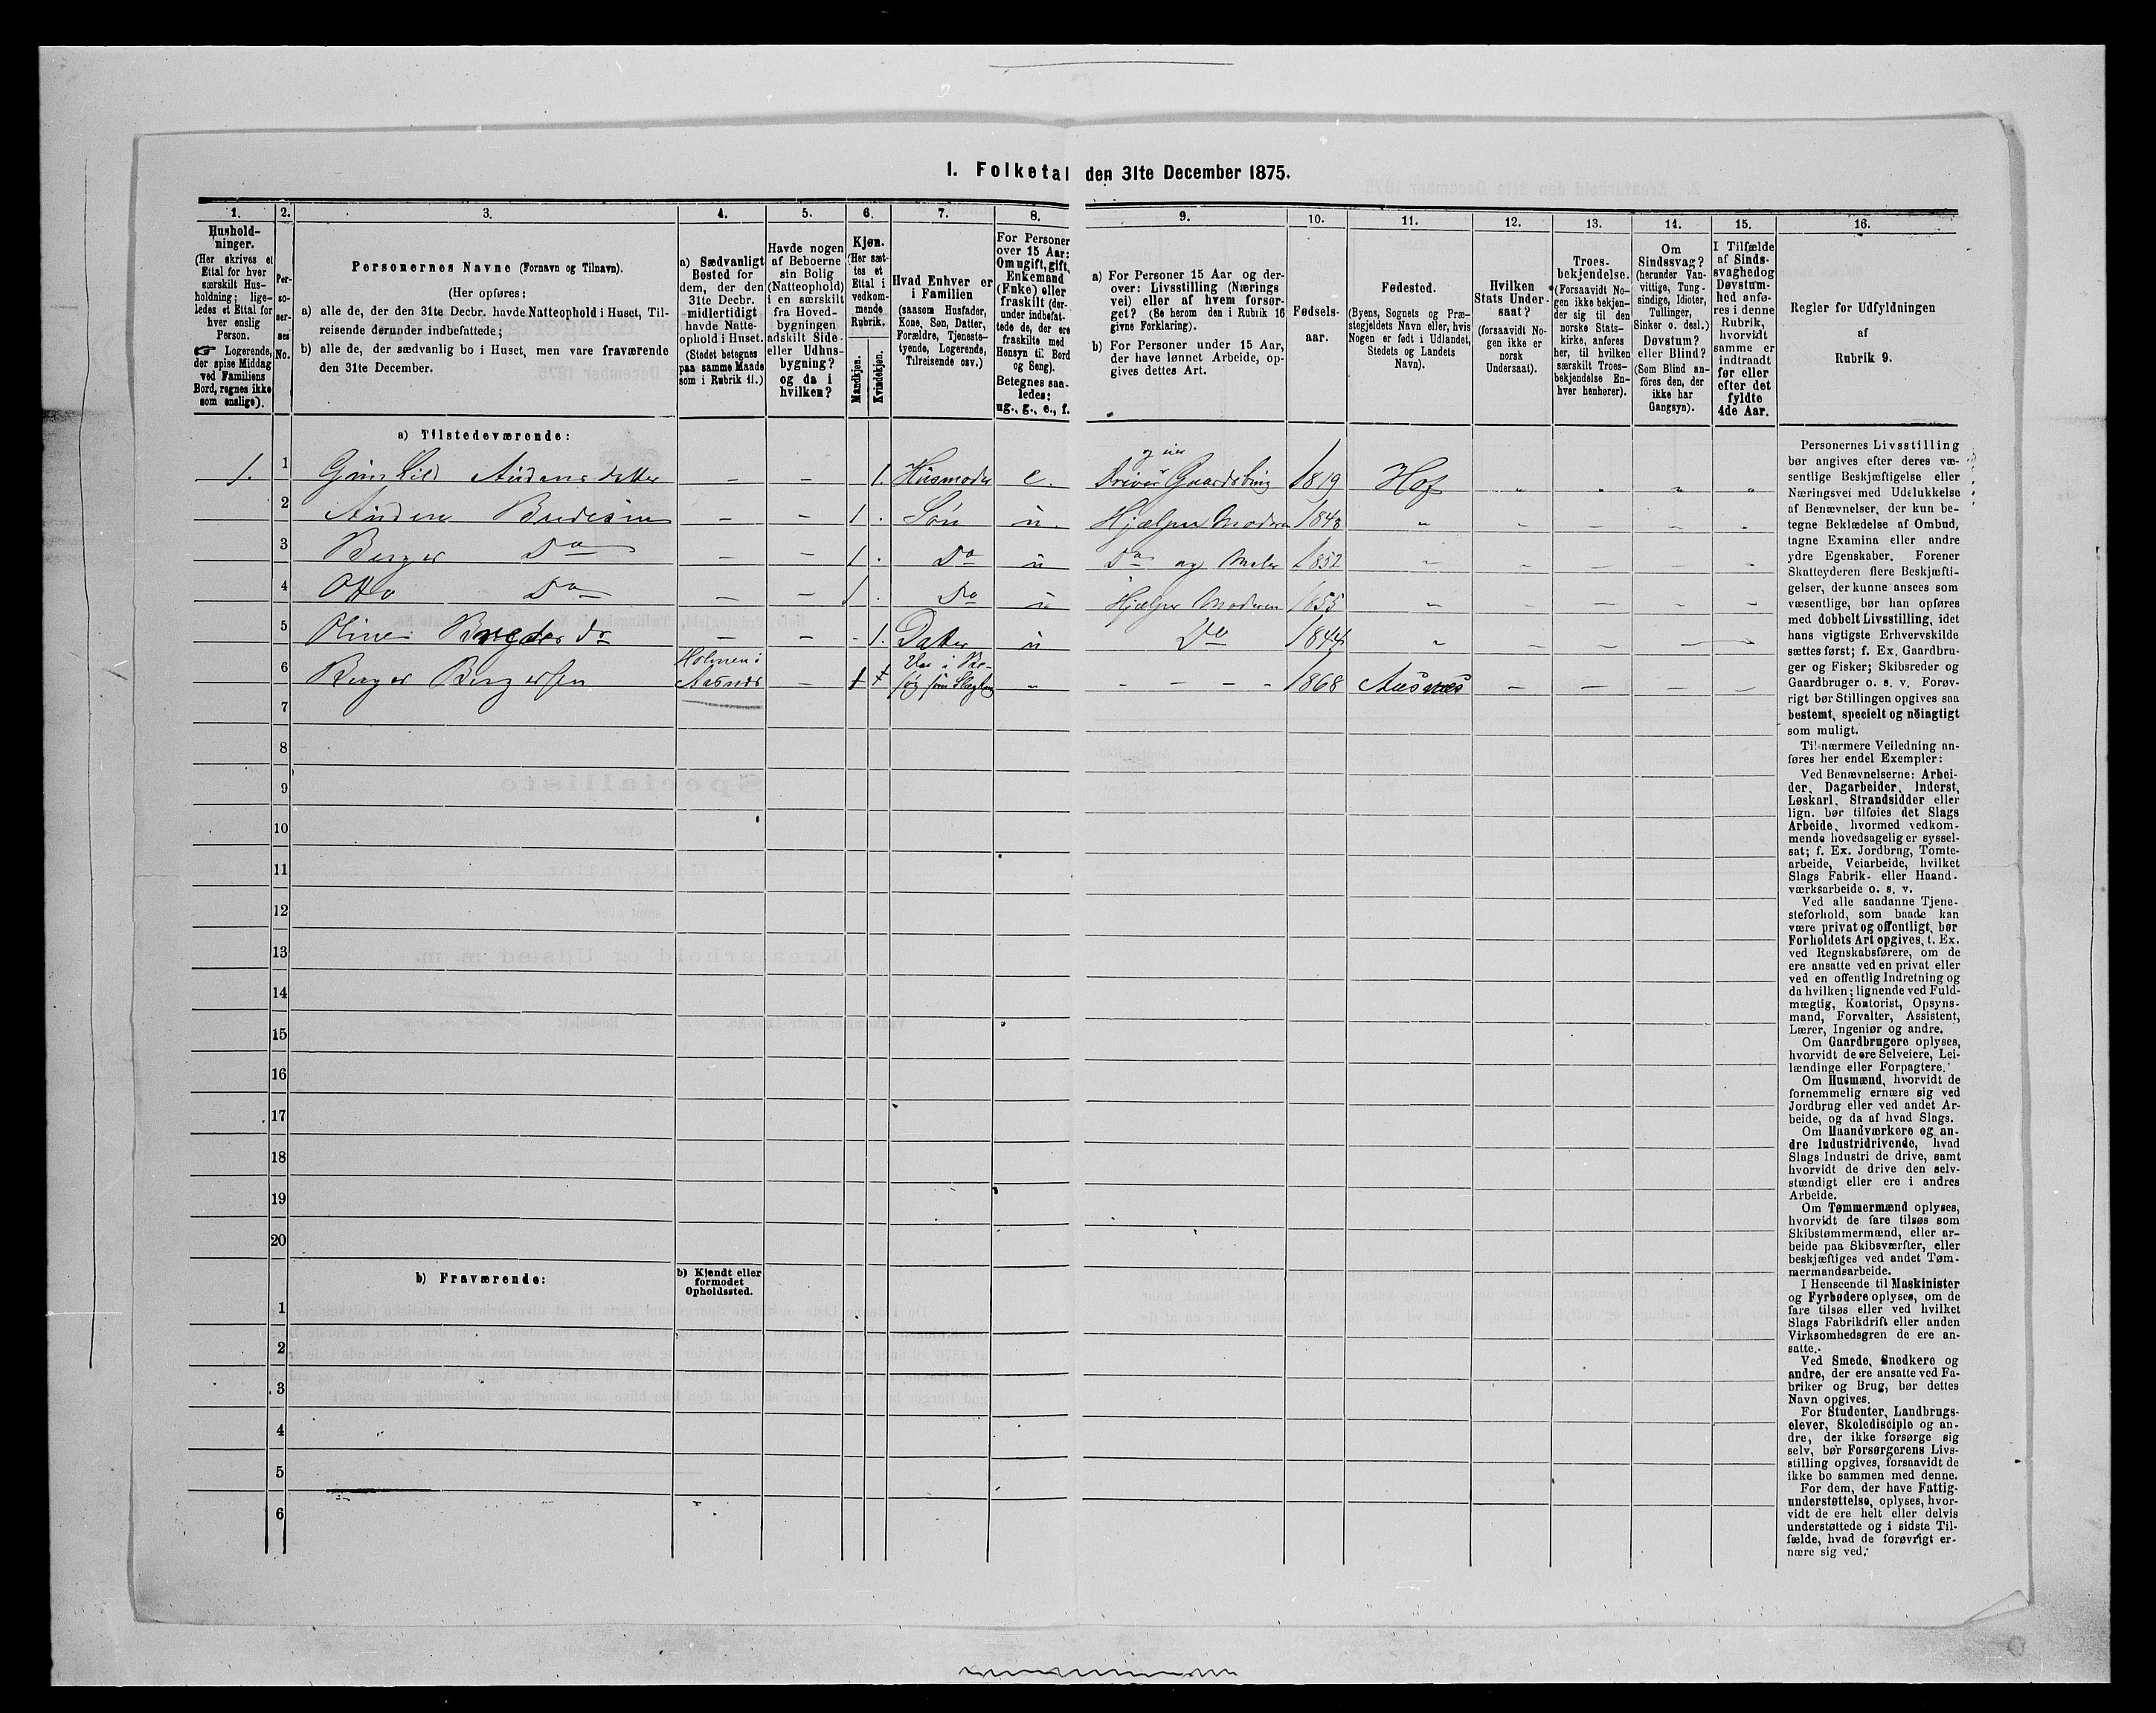 1. Folketal den 31te December 1875.
1. 2. 3. 4. 5. 6. 7. 8. 9. 10. 11. 12. 13. 14. 15. 16.
Hushold-
ninger.
(Her skrives et
Ettal for hver
særskilt Hus-
holdning; lige-
ledes et Ettal for
hver enslig
Person.
☞ Logerende,
der spise Middag
ved Familiens
Bord, regnes ikke
som enslige).
Per-
so-
ner-
nes
No.
Personernes Navne (Fornavn og Tilnavn).
(Her opføres:
a) alle de, der den 31te Decbr. havde Natteophold i Huset, Til-
reisende derunder indbefattede;
b) alle de, der sædvanlig bo i Huset, men vare fraværende
den 31te December.
a) Sædvanligt
Bosted for
dem, der den
31te Decbr.
midlertidigt
havde Natte-
ophold i Huset.
(Stedet betegnes
paa samme Maade
som i Rubrik 11.)
Havde nogen
af Beboerne
sin Bolig
(Natteophold)
i en særskilt
fra Hoved-
bygningen
adskilt Side-
eller Udhus-
bygning?
og da i
hvilken?
Kjøn.
(Her sæt-
tes et
Ettal i
vedkom-
mende
Rubrik.
Mandkjøn.
Kvindekjøn.
Hvad Enhver er
i Familien
(saasom Husfader,
Kone, Søn, Datter,
Forældre, Tjeneste-
tyende, Logerende,
Tilreisende osv.)
For Personer
over 15 Aar:
Om ugift, gift,
Enkemand
(Enke) eller
fraskilt (der-
under indbefat-
tede de, der ere
fraskilte med
Hensyn til Bord
og Seng).
Betegnes saa-
ledes:
ug., g., e., f.
a) For Personer 15 Aar og der-
over: Livsstilling (Nærings
vei) eller af hvem forsør-
get? (Se herom den i Rubrik 16
givne Forklaring).
b) For Personer under 15 Aar,
der have lønnet Arbeide, op-
gives dettes Art.
Fødsels-
aar.
Fødested.
(Byens, Sognets og Præ-
stegjeldets Navn eller, hvis
Nogen er født i Udlandet,
Stedets og Landets
Navn).
Hvilken
Stats Under-
saat?
(forsaavidt No-
gen ikke er
norsk
Undersaat).
Troes-
bekjendelse.
(Forsaavidt No-
gen ikke bekjen-
der sig til den
norske Stats-
kirke, anføres
her, til hvilken
særskilt Troes-
bekjendelse En-
hver henhører).
Om
Sindssvag?
(herunder Van-
vittige, Tung-
sindige, Idioter,
Tullinger,
Sinker o. desl.)
Døvstum?
eller Blind?
(Som Blind an-
føres den, der
ikke har
Gangsyn).
I Tilfælde
af Sinds-
svaghed og
Døvstum-
hed anfø-
res i denne
Rubrik,
hvorvidt
samme er
indtraadt
før eller
efter det
fyldte
4de Aar.
Regler for Udfyldningen
af
Rubrik 9.
a) Tilstedeværende:
1. 1 Gunhild Audensdatter - - 1. Husmoder e. Driver Gaardsbrug 1819 Hof
2 Auden Budesen - - 1 . Søn u. Hjælper Moderen 1848 "
3 Berger Do - - 1 . Do u Do og Maler 1852 "
4 Otto Do - - 1 . Do u Hjælper Moderen 1855 "
5 Oline - - - 1. Datter u Do 1844 "
6 Berger Bergersen Holmen i
Aasnes - 1 1868 Aasnes
7
8
9
10
11
12
13
14
15
16
17
18
19
20
b) Fraværende:
b) Kjendt eller
formodet
Opholdssted.
1
2
3
4
5
6
Personernes Livsstilling
bør angives efter deres væ-
sentlige Beskjæftigelse eller
Næringsvei med Udelukkelse
af Benævnelser, der kun be-
tegne Beklædelse af Ombud,
tagne Examina eller andre
ydre Egenskaber. Forener
Skatteyderen flere Beskjæfti-
gelser, der kunne ansees som
væsentlige, bør han opføres
med dobbelt Livsstilling, idet
hans vigtigste Erhvervskilde
sættes først; f. Ex. Gaardbru-
ger og Fisker; Skibsreder og
Gaardbruger o. s. v. Forøv-
rigt bør Stillingen opgives saa
bestemt, specielt og nøiagtigt
som muligt.
Til nærmere Veiledning an-
føres her endel Exempler:
Ved Benævnelserne: Arbei-
der, Dagarbeider, Inderst,
Løskarl, Strandsidder eller
lign. bør tilføies det Slags
Arbeide, hvormed vedkom-
mende hovedsagelig er syssel-
sat; f. Ex. Jordbrug, Tomte-
arbeide, Veiarbeide, hvilket
Slags Fabrik- eller Haand-
værksarbeide o. s. v.
Ved alle saadanne Tjene-
steforhold, som baade kan
være privat og offentligt, bør
Forholdets Art opgives, t. Ex.
ved Regnskabsførere, om de
ere ansatte ved en privat eller
ved en offentlig Indretning og
da hvilken; lignende ved Fuld-
mægtig, Kontorist, Opsyns-
mand, Forvalter, Assistent,
Lærer, Ingeniør og andre.
Om Gaardbrugere oplyses,
hvorvidt de ere Selveiere, Lei-
lændinge eller Forpagtere.
Om Husmænd, hvorvidt de
fornemmelig ernære sig ved
Jordbrug eller ved andet Ar-
beide, og da af hvad Slags.
Om Haandværkere og an-
dre Industridrivende, hvad
Slags Industri de drive, samt
hvorvidt de drive den selv-
stændigt eller ere i andres
Arbeide.
Om Tømmermænd oplyses,
hvorvidt de fare tilsøs som
Skibstømmermænd, eller ar-
beide paa Skibsværfter, eller
beskjæftiges ved andet Tøm-
mermandsarbeide.
I Henseende til Maskinister
og Fyrbødere oplyses, om de
fare tilsøs eller ved hvilket
Slags Fabrikdrift eller anden
Virksomhedsgren de ere an-
satte.
Ved Smede, Snedkere og
andre, der ere ansatte ved Fa-
briker og Brug, bør dettes
Navn opgives.
For Studenter, Landbrugs-
elever, Skoledisciple og an-
dre, der ikke forsørge sig
selv, bør Forsørgerens Livs-
stilling opgives, forsaavidt de
ikke bo sammen med denne.
For dem, der have Fattig-
understøttelse, oplyses, hvor-
vidt de ere helt eller delvis
understøttede og i sidste Til-
fælde, hvad de forøvrigt er-
nære sig ved.